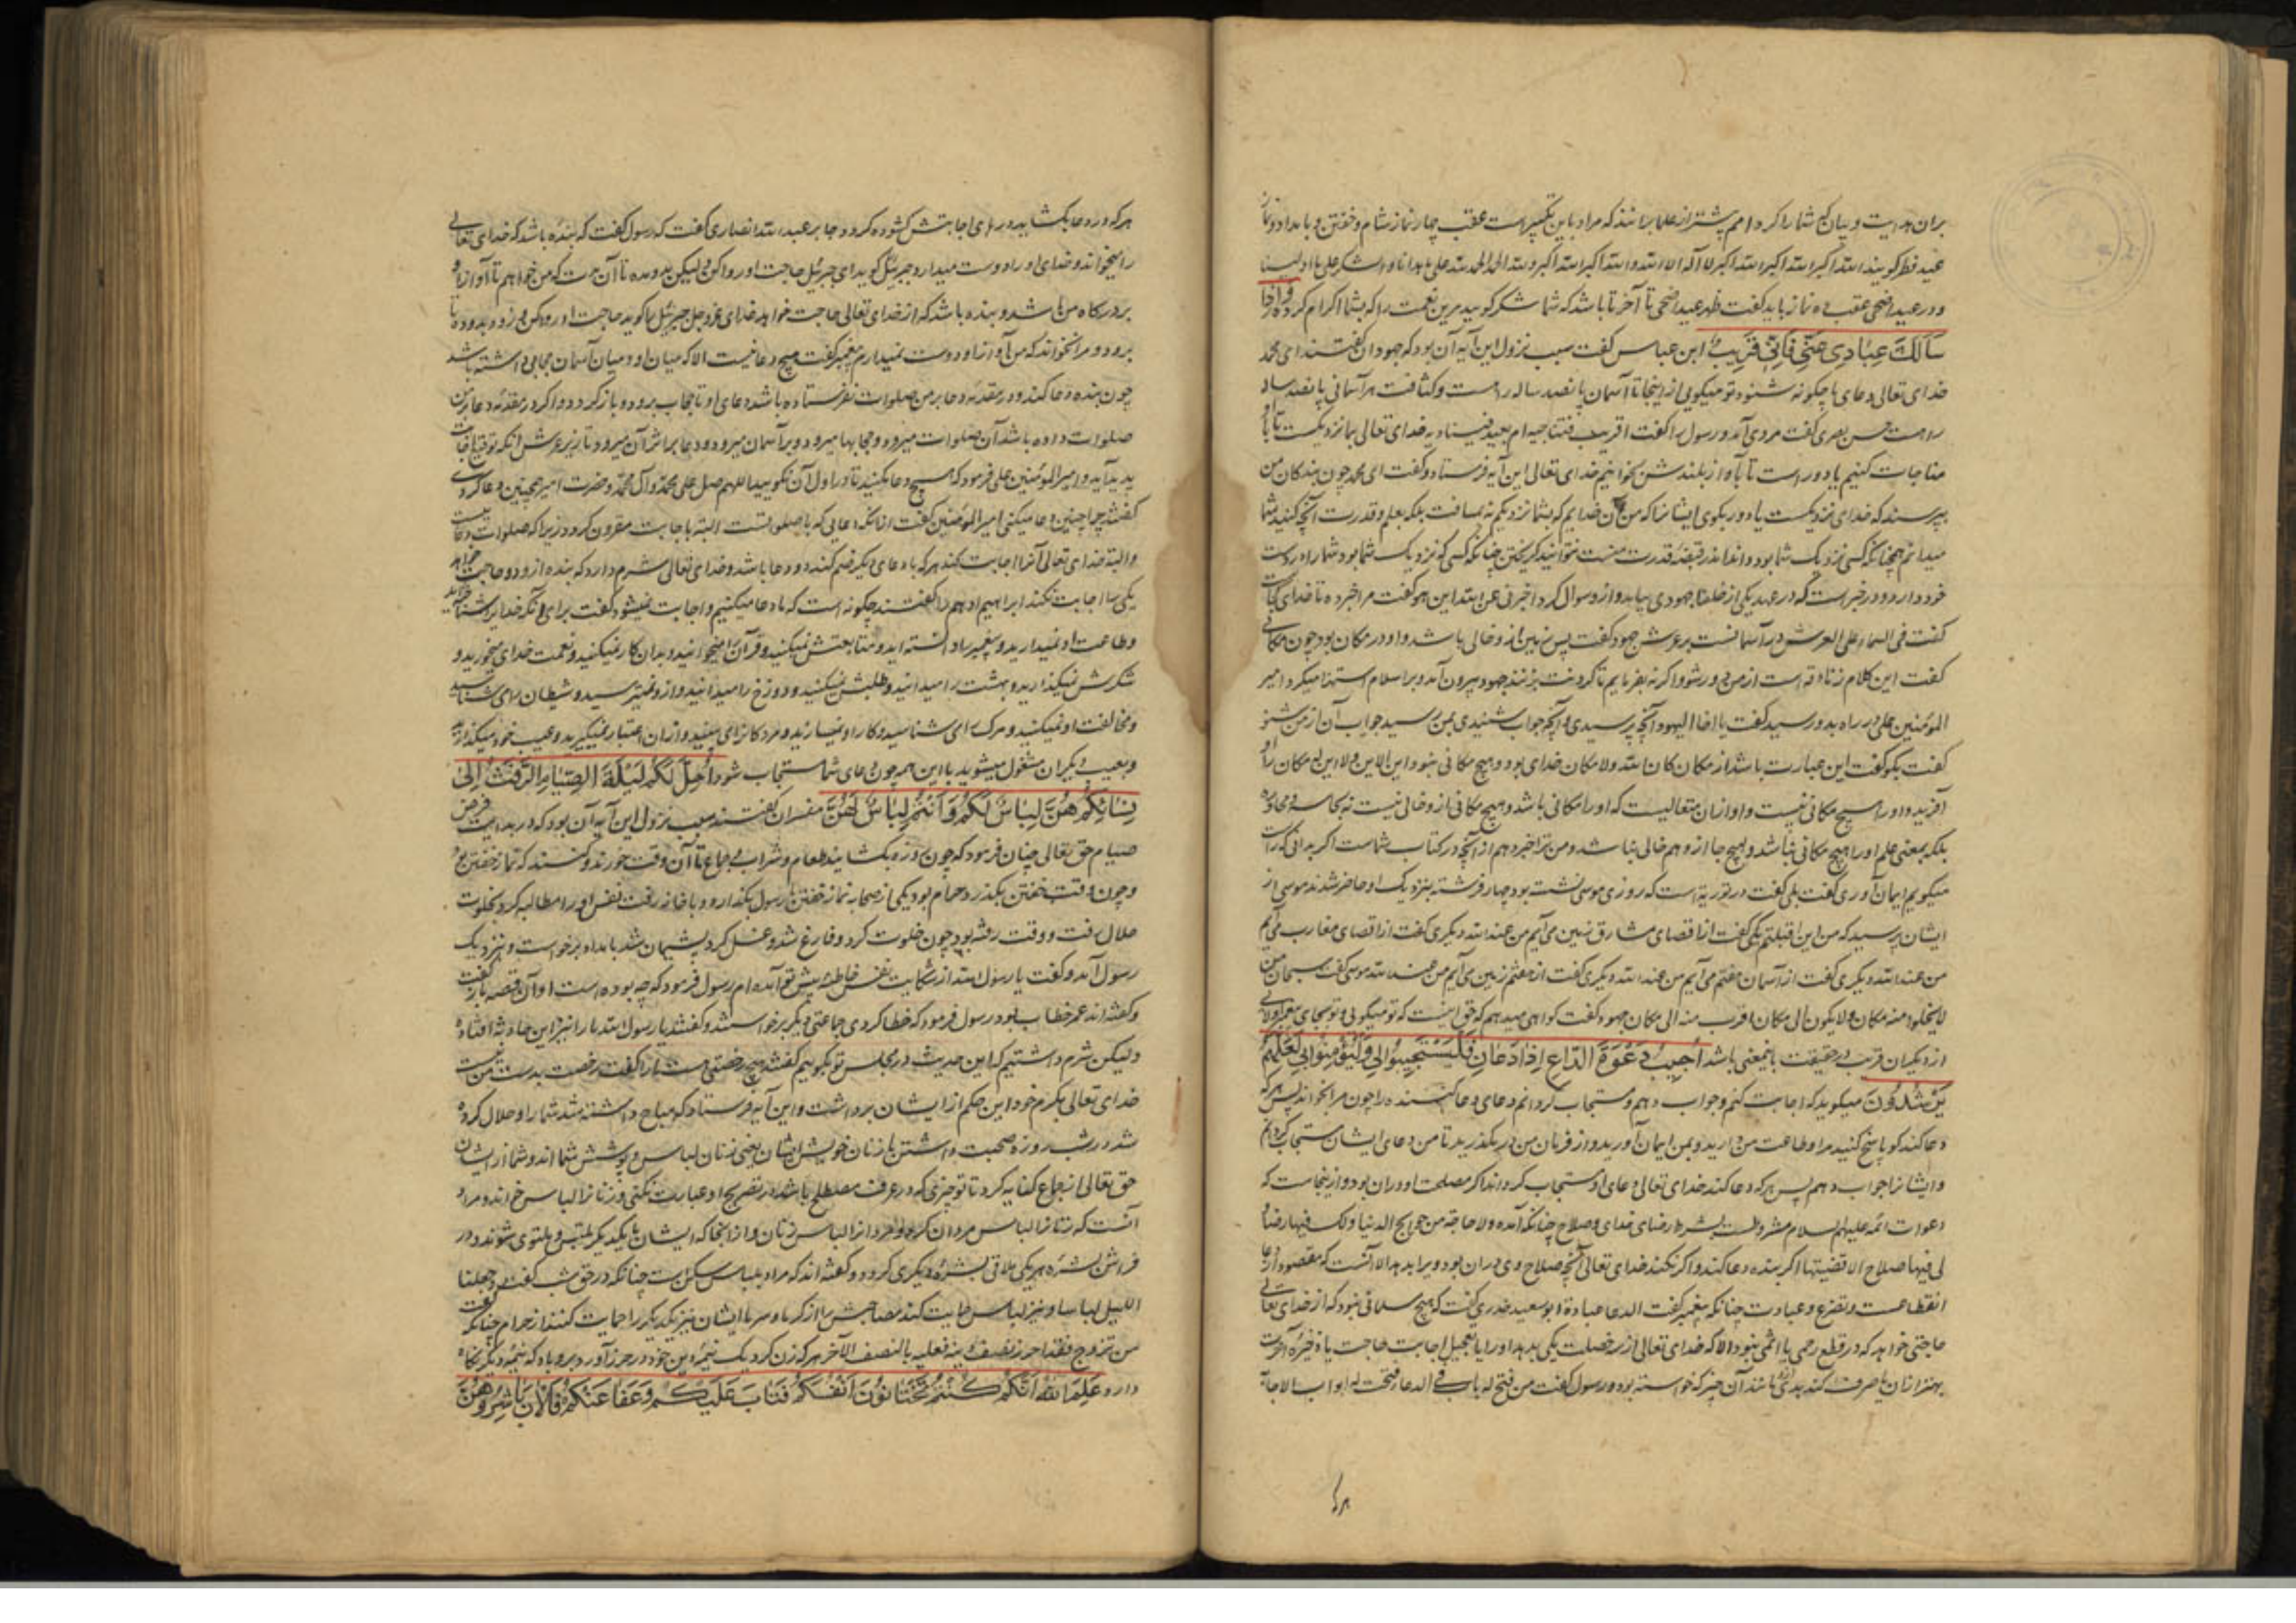 بران هدایت و بیان که شما را کرد امم پیشتر از علما برانند که مراد باین تکبیر است عقب چهار نماز شام و خفتن و بامداد و نماز
عید فطر گویند الله اکبر الله اکبر الله اکبر لا اله الا الله و الله اکبر الله اکبر و لله الحمد الحمد لله علی ما هدانا و له الشکر علی ما اولینا
و در عید اضحی عقب ده نماز باید گفت ظهر عید اضحی تا آخر تا باشد که شما شکر گویید برین نعمت را که بشما اکرام کرد وَاِذا
سَاَلَكَ عِبَادِي عَنّي فَاِنّي قَريبٌ ابن عباس گفت سبب نزول این آیه آن بود که جهودان گفتند ای محمد
خدای تعالی دعای ما چگونه شنود تو میگویی از اینجا تا آسمان پانصد ساله راهست و کثافت هر آسمانی پانصد ساله
راهست حسن بصری گفت مردی آمد و رسول را گفت اقریب فنناجیه ام بعید فینادیه خدای تعالی بما نزدیکست تا با او
مناجات کنیم یا دور است تا بآواز بلندش بخوانیم خدای تعالی این آیه فرستاد و گفت ای محمد چون بندکان من
بپرسند که خدای نزدیکست یا دور بگوی ایشانرا که من آن خدایم که بشما نزدیکم نه بمسافت بلکه بعلم و قدرت آنچه کنید شما
میدانم همچنانکه کسی نزدیک شما بود و اندر قبضه قدرت منست نتوانید گریختن چنانکه کسی که نزدیک شما بود شما را بدست
خود دارد و در خبر است که در عهد یکی از خلفا جهودی بیامد و ازو سوال کرد اخبرنی عن الله این هو گفت مرا خبر ده تا خدای کجاست
گفت فی السماء علی العرش در آسمانست بر عرش جهود گفت پس زمین ازو خالی باشد و او در مکان بود چون مکانی
گفت این کلام زنادقه است از من دور شو و اگر نه بفرمایم تا گردنت بزنند جهود بیرون آمد و بر اسلام استهزا میکرد امیر
المؤمنین علی در راه بدو رسید گفت یا اخا الیهود آنچه پرسیدی و آنچه جواب شنیدی بمن رسید جواب آن از من شنو
گفت بگو گفت این عبارت باشد از مکان کان الله ولا مکان خدای بود و هیچ مکانی نبود این الاین ولا این له مکان را او
آفرید و او را هیچ مکانی نیست و او از ان متعالیست که او را مکانی باشد و هیچ مکانی ازو خالی نیست نه بمماسه و مجاوره
بلکه بمعنی علم او را هیچ مکانی نباشد و هیچ جا ازو هم خالی نباشد و من ترا خبر دهم از آنچه در کتاب شماست اگر بدانی که راست
میگویم ایمان آوری گفت بلی گفت در توریة است که روزی موسی نشسته بود چهار فرشته بنزدیک او حاضر شدند موسی از
ایشان پرسید که من این اقبلتم یکی گفت از اقصای مشارق زمین می آیم من عند الله دیگری گفت از اقصای مغارب می آیم
من عند الله دیگری گفت از آسمان هفتم می آیم من عند الله دیگری گفت از هفتم زمین می آیم من عند الله موسی گفت سبحان من
لا یخلو منه مکان ولا یکون الی مکان اقرب منه الی مکان جهود گفت گواهی میدهم که حق اینست که تو میگویی و تو بجای پیغمبر اولی
از دیگران قریب در حقیقت باینمعنی باشد اُجيبُ دَعْوَةَ الدّاعِ اِذا دَعانِ فَلْيَسْتَجيبُوا لي وَلْيُؤْمِنُوا بي لَعَلَّهُمْ
يَرْشُدُونَ میگوید که اجابت کنم و جواب دهم و مستجاب گردانم دعای دعا کننده را چون مرا بخواند پس هر که
دعا کند گو پاسخ کنید مرا و طاعت من دارید و بمن ایمان آورید و از فرمان من در نگذرید تا من دعای ایشان مستجاب گردانم
و ایشانرا جواب دهم پس هر که دعا کند خدای تعالی دعای او مستجاب گرداند اگر مصلحت او در ان بود و از ینجاست که
دعوات ائمه علیهم السلام مشروطست بشرط رضای خدای و صلاح چنانکه آمده ولا حاجة من حوایج الدنیا ولک فیها رضا و
لی فیها صلاح الا قضیتها اگر بنده دعا کند و اگر نکند خدای تعالی آنچه صلاح وی در ان بود ویرا بدهد الا آنست که مقصود از دعا
انقطاعست و تضرع و عبادت چنانکه پیغمبر گفت الدعا عبادة ابو سعید خدری گفت که هیچ مسلمانی نبود که از خدای تعالی
حاجتی خواهد که در قطع رحمی یا اثمی نبود الا که خدای تعالی از سه خصلت یکی بدهد او را یا تعجیل اجابت حاجت یا ذخیرۀ آخرت
بهتر از ان یا صرف کند بدی که مانند آن چیز که خواسته بود و رسول گفت من فتح له باب فی الدعاء فتحت له ابواب الاجابة
هر که
هر که در دعا بگشاید درهای اجابتش گشوده گردد جابر عبد الله انصاری گفت که رسول گفت که بنده باشد که خدای تعالی
را میخواند و خدای او را دوست میدارد جبرئیل گوید ای جبرئیل حاجت او روا کن و لیکن بدو مده تا آن وقت که من خواهم تا آواز او
بر درگاه من باشد و بنده باشد که از خدای تعالی حاجت خواهد خدای عز و جل جبرئیل را گوید حاجت او روا کن و زود بدو ده تا
برود و مرا نخواند که من آواز او دوست نمیدارم پیغمبر گفت هیچ دعا نیست الا که میان او و میان آسمان حجابی داشته باشد
چون بنده دعا کند و در مقدمه دعا بر من صلوات نفرستاده باشد دعای او تا حجاب برود و باز گردد و اگر در مقدمه دعا بر من
صلوات داده باشد آن صلوات میرود و حجابها میرود و بر آسمان میرود و دعا بر اثر آن میرود تا بزیر عرش آنکه توقیع اجابت
پدید آید و امیر المؤمنین علی فرمود که هیچ دعا مکنید تا در اول آن نگویید اللهم صل علی محمد و آل محمد و حضرت امیر همچنین دعا کردی
گفتند چرا چنین دعا میکنی امیر المؤمنین گفت از آنکه دعایی که با صلواتست البته باجابت مقرون گردد زیرا که صلوات دعاست
و البته خدای تعالی آنرا اجابت کند هر که با دعای دیگر ضم کنند دو دعا باشد و خدای تعالی شرم دارد که بنده ازو دو حاجت خواهد
یکی را اجابت نکند ابراهیم ادهم را گفتند چگونه است که ما دعا میکنیم و اجابت نمیشود گفت برای آنکه خدایرا شناخته‌اید
و طاعت او نمیدارید و پیغمبر را دانسته اید و متابعتش نمیکنید و قرآن میخوانید و بدان کار نمیکنید و نعمت خدای میخورید و
شکرش نمیگذارید و بهشت را میدانید و طلبش نمیکنید و دوزخ را میدانید و ازو نمیترسید و شیطان را می شناسید
و مخالفت او نمیکنید و مرگ را می شناسید و کار او نمیسازید و مردکانرا می بینید و از ان اعتبار نمیگیرید و عیب خود میگذارید
و بعیب دیگران مشغول میشوید با این همه چون دعای شما مستجاب شود اُحِلَّ لَكُمْ لَيْلَةَ الصِّيَامِ الرَّفَثُ اِلىٰ
نِسَائِكُمْ هُنَّ لِبَاسٌ لَكُمْ وَ اَنْتُمْ لِبَاسٌ لَهُنَّ مفسران گفتند سبب نزول این آیه آن بود که در بدایت فرض
صیام حق تعالی چنان فرمود که چون روزه بگشایند طعام و شراب و جماع تا آن وقت خورند و کنند که نماز خفتن بود
و چون وقت خفتن بگذرد حرام بود یکی از صحابه نماز خفتن با رسول بگذارد و با خانه رفت نفس او را مطالبه کرد بخلوت
حلال رفت و وقت رفته بود چون خلوت کرد و فارغ شد و غسل کرد پشیمان شد بامداد برخواست و نزدیک
رسول آمد و گفت یا رسول الله از شکایت نفس خاطئه پیش تو آمده ام رسول فرمود که چه بوده است او آن قصه باز گفت
و گفته‌اند عمر خطاب بود رسول فرمود که خطا کردی جماعتی دیگر برخواستند و گفتند یا رسول الله ما را نیز این حادثه افتاده
و لیکن شرم داشتیم که این حدیث در مجلس تو بگوییم گفتند هیچ رخصتی هست ما را گفت رخصت بدست من نیست
خدای تعالی بکرم خود این حکم از ایشان برداشت و این آیه فرستاد که مباح داشته شد شما را و حلال کرده
شد در شب روزه صحبت داشتن با زنان خویش ایشان یعنی زنان لباس و پوشش شما اند و شما از ایشان
حق تعالی از جماع کنایه کرد تا تو چیزی که در عرف مصطلح باشد در تصریح او عبارت نکنی و زنانرا لباس خواند و مراد
آنست که زنانرا لباس مردان کرد و مردانرا لباس زنان و از انجا که ایشان با یکدیگر ملتبس و ملتوی شوند و در
فراش بشره هر یکی ملاقی بشرۀ دیگری گردد و گفته اند که مراد بلباس سکن است چنانکه در حق شب گفت و جعلنا
اللیل لباسا و نیز لباس حمایت کند صاحبش را از گرما و سرما ایشان نیز یکدیگر را حمایت کنند از حرام چنانکه گفت
من تزوج فقد احرز نصف دینه فعلیه بالنصف الآخر هر که زن کرد یک نیمۀ دین خود در حرز آورد برو باد که نیمۀ دیگر نگاه
دارد عَلِمَ اللهُ اَنَّكُمْ كُنْتُمْ تَخْتَانُونَ اَنْفُسَكُمْ فَتَابَ عَلَيْكُمْ وَ عَفَا عَنْكُمْ فَالْآنَ بَاشِرُوهُنَّ